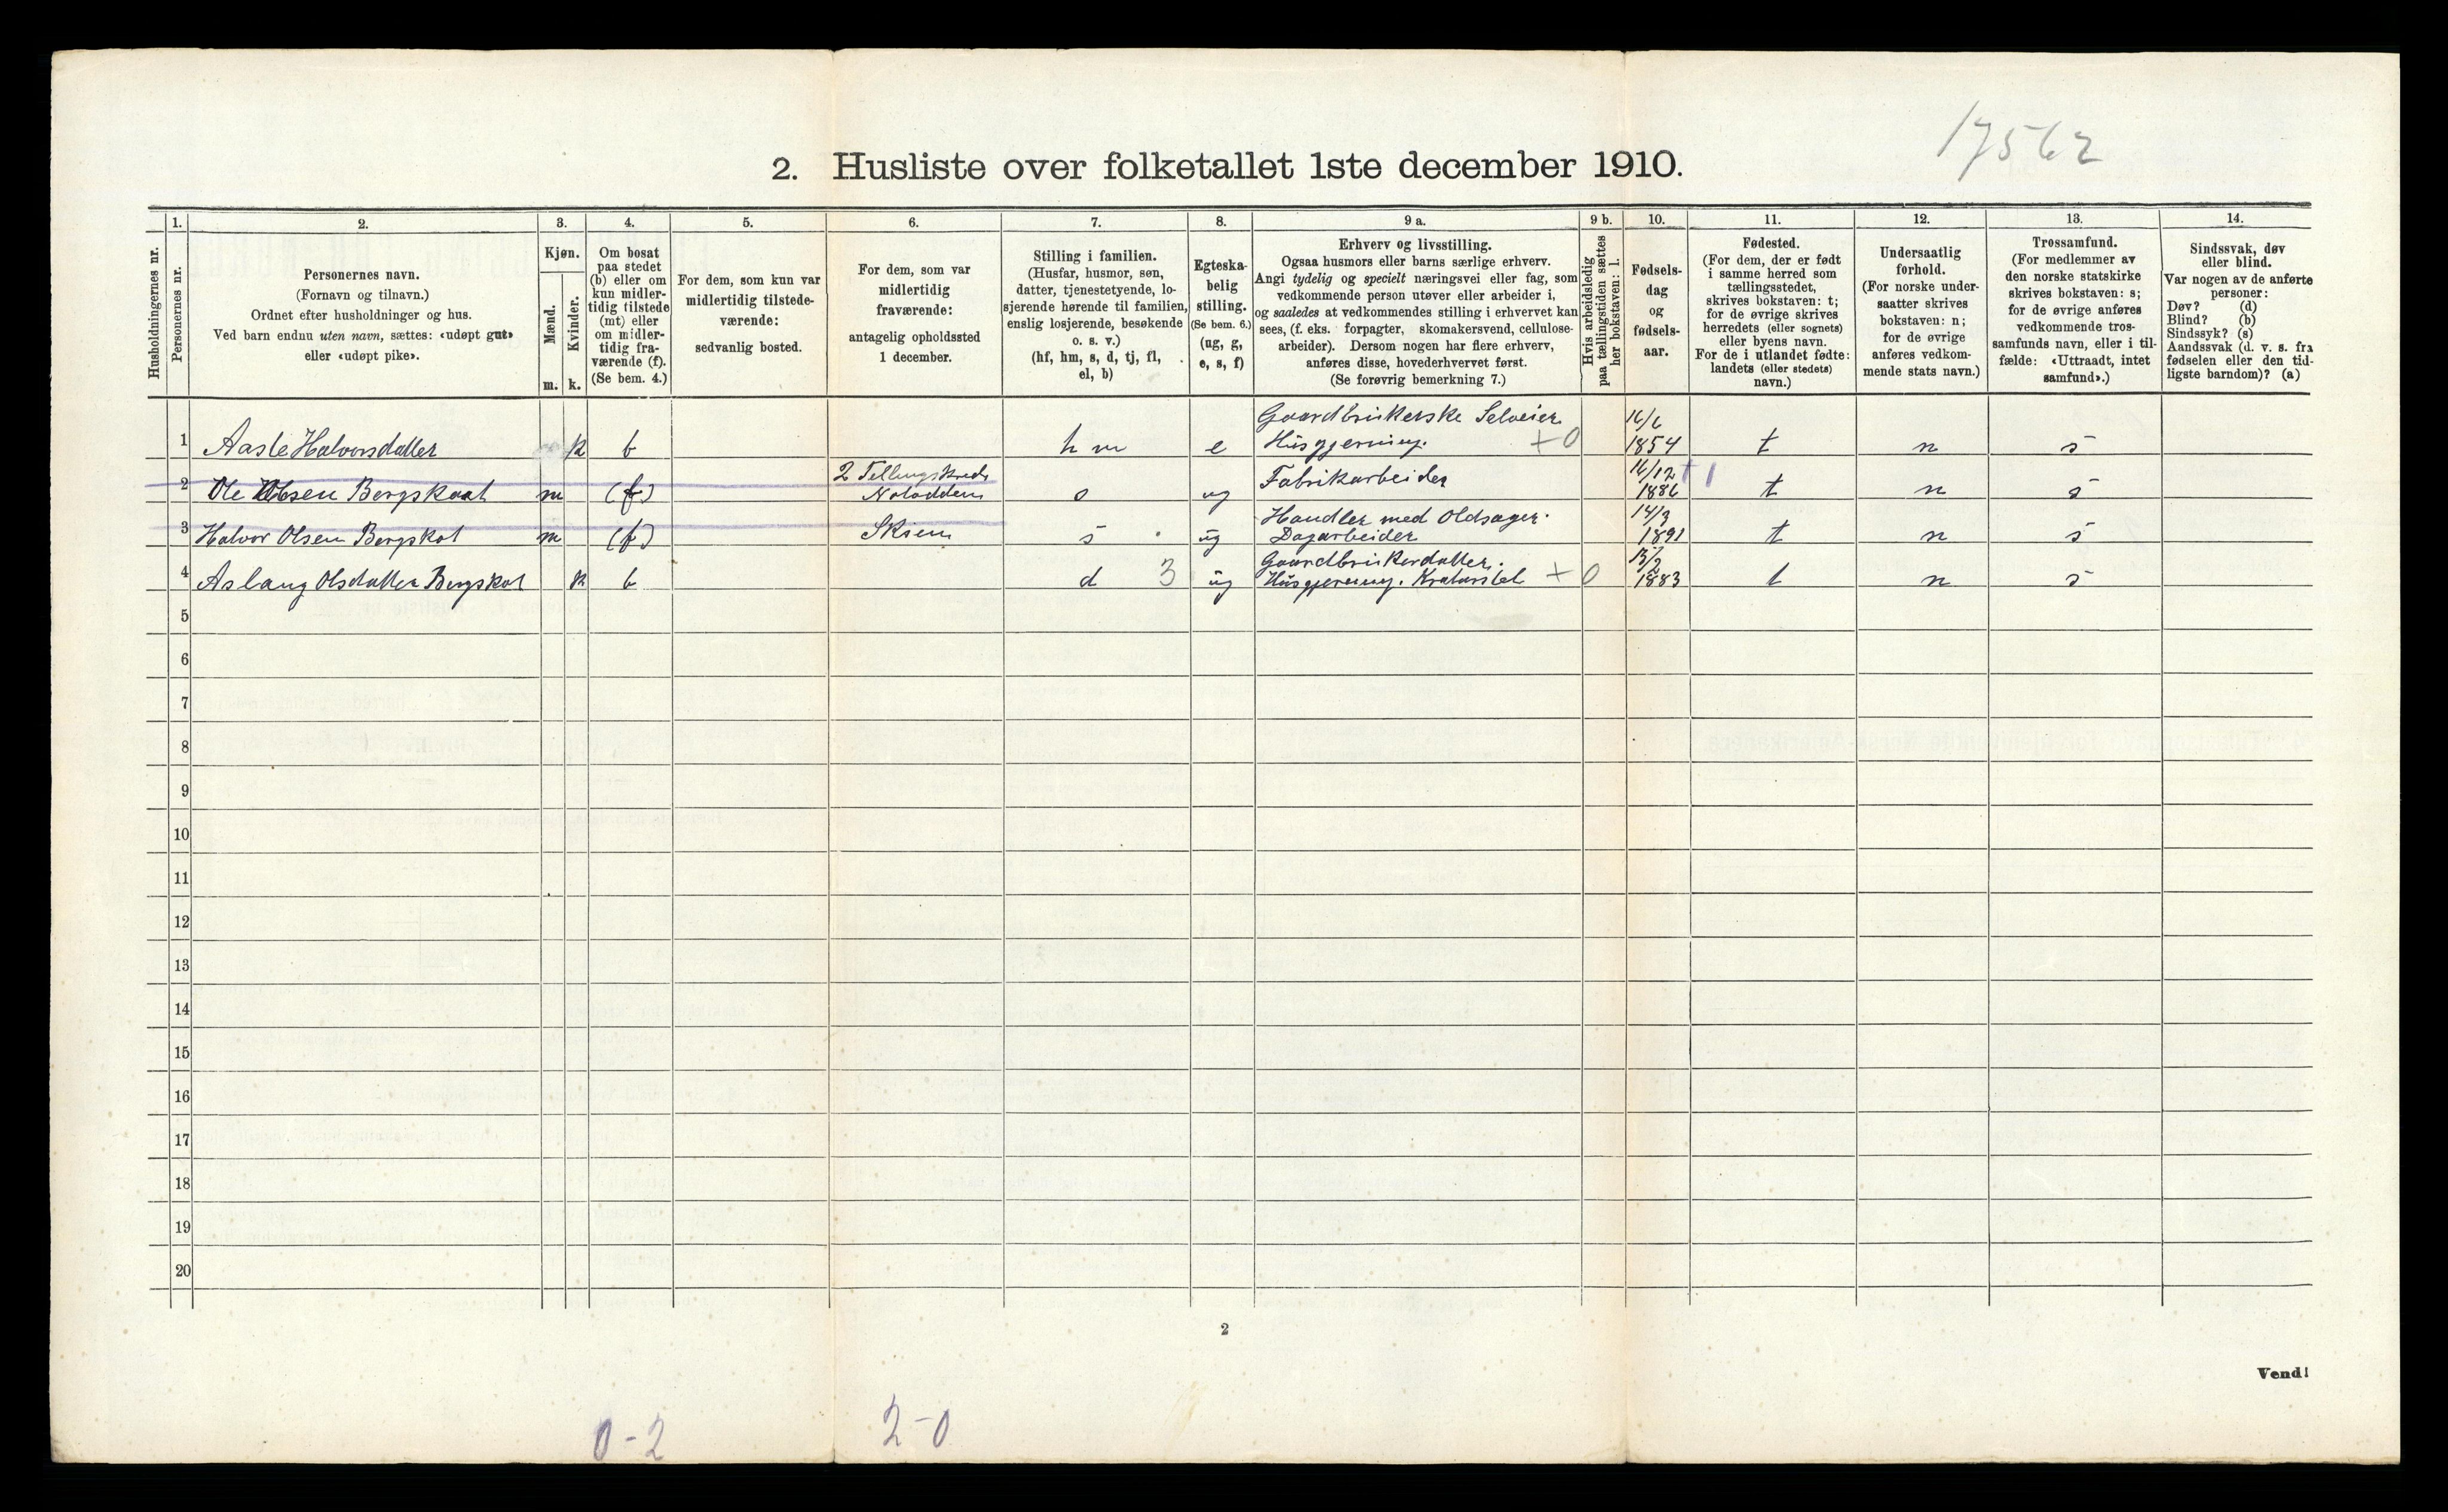 17562
2. Husliste over folketallet 1ste december 1910.
Husholdningernes nr.
1.
Personernes nr.
2.
Personernes navn.
(Fornavn og tilnavn.)
Ordnet efter husholdninger og hus.
Ved barn endnu uten navn, sættes: «udøpt gut»
eller «udøpt pike».
3.
Kjøn.
Mænd.
m.
Kvinder.
k.
4.
Om bosat
paa stedet
(b) eller om
kun midler-
tidig tilstede
(mt) eller
om midler-
tidig fra-
værende (f).
(Se bem. 4.)
5.
For dem, som kun var
midlertidig tilstede-
værende:
sedvanlig bosted.
6.
For dem, som var
midlertidig
fraværende:
antagelig opholdssted
1 december.
7.
Stilling i familien.
(Husfar, husmor, søn,
datter, tjenestetyende, lo-
sjerende hørende til familien,
enslig losjerende, besøkende
o. s. v.)
(hf, hm, s, d, tj, fl,
el, b)
8.
Egteska-
belig
stilling.
(Se bem. 6.)
(ug, g,
e, s, f)
9 a.
Erhverv og livsstilling.
Ogsaa husmors eller barns særlige erhverv.
Angi tydelig og specielt næringsvei eller fag, som
vedkommende person utøver eller arbeider i,
og saaledes at vedkommendes stilling i erhvervet kan
sees, (f. eks. forpagter, skomakersvend, cellulose-
arbeider). Dersom nogen har flere erhverv,
anføres disse, hovederhvervet først.
(Se forøvrig bemerkning 7.)
9 b.
Hvis arbeidsledig
paa tællingstiden sættes
her bokstaven: l.
10.
Fødsels-
dag
og
fødsels-
aar.
11.
Fødested.
(For dem, der er født
i samme herred som
tællingsstedet,
skrives bokstaven: t;
for de øvrige skrives
herredets (eller sognets)
eller byens navn.
For de i utlandet fødte:
landets (eller stedets)
navn.)
12.
Undersaatlig
forhold.
(For norske under-
saatter skrives
bokstaven: n;
for de øvrige
anføres vedkom-
mende stats navn.)
13.
Trossamfund.
(For medlemmer av
den norske statskirke
skrives bokstaven: s;
for de øvrige anføres
vedkommende tros-
samfunds navn, eller i til-
fælde: «Uttraadt, intet
samfund».)
14.
Sindssvak, døv
eller blind.
Var nogen av de anførte
personer:
Døv? (d)
Blind? (b)
Sindssyk? (s)
Aandssvak (d. v. s. fra
fødselen eller den tid-
ligste barndom)? (a)
Gaardbrukerske Selveier 16/6
1 Aasle Halvorsdatter k b h m e Husgjerning. +0 1854 t n s
2 Tellingskreds Fabrikarbeider 16/12 +1
2 Ole Olsen Bergskaat m (f) Notodden ug 1886 t n s
Handler med Oldsager. 14/3
3 Halvor Olsen Bergskot m (f) Skien s ug Dagarbeider 1891 t n s
Gaardbrukerdatter.
4 Aslaug Olsdatter Bergskot k b d 3 ug Husgjerning. +0 1883 t n s
5
6
7
8
9
10
11
12
13
14
15
16
17
18
19
20
2
Vend!
0-2 2-0